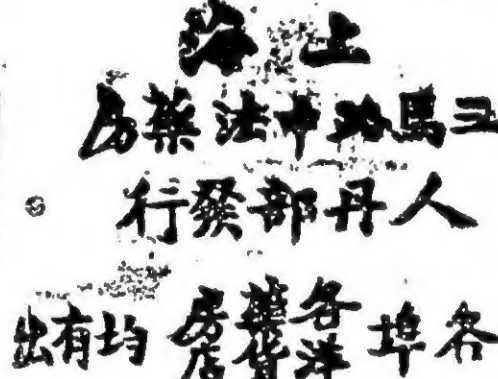 上海
三馬路中法藥房
人丹部發行
各埠各藥房洋貨店均有出